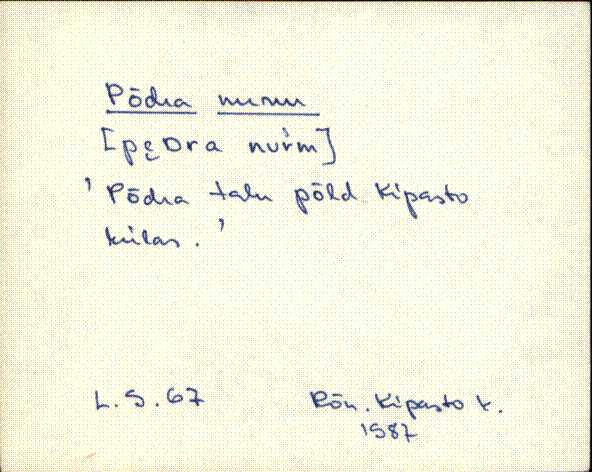 Põdra nurm
[pęDra nuŕm]
'Põdra talu põld Kipasto
külas.'
L. S. 67
Rõu. Kipasto k.
1987